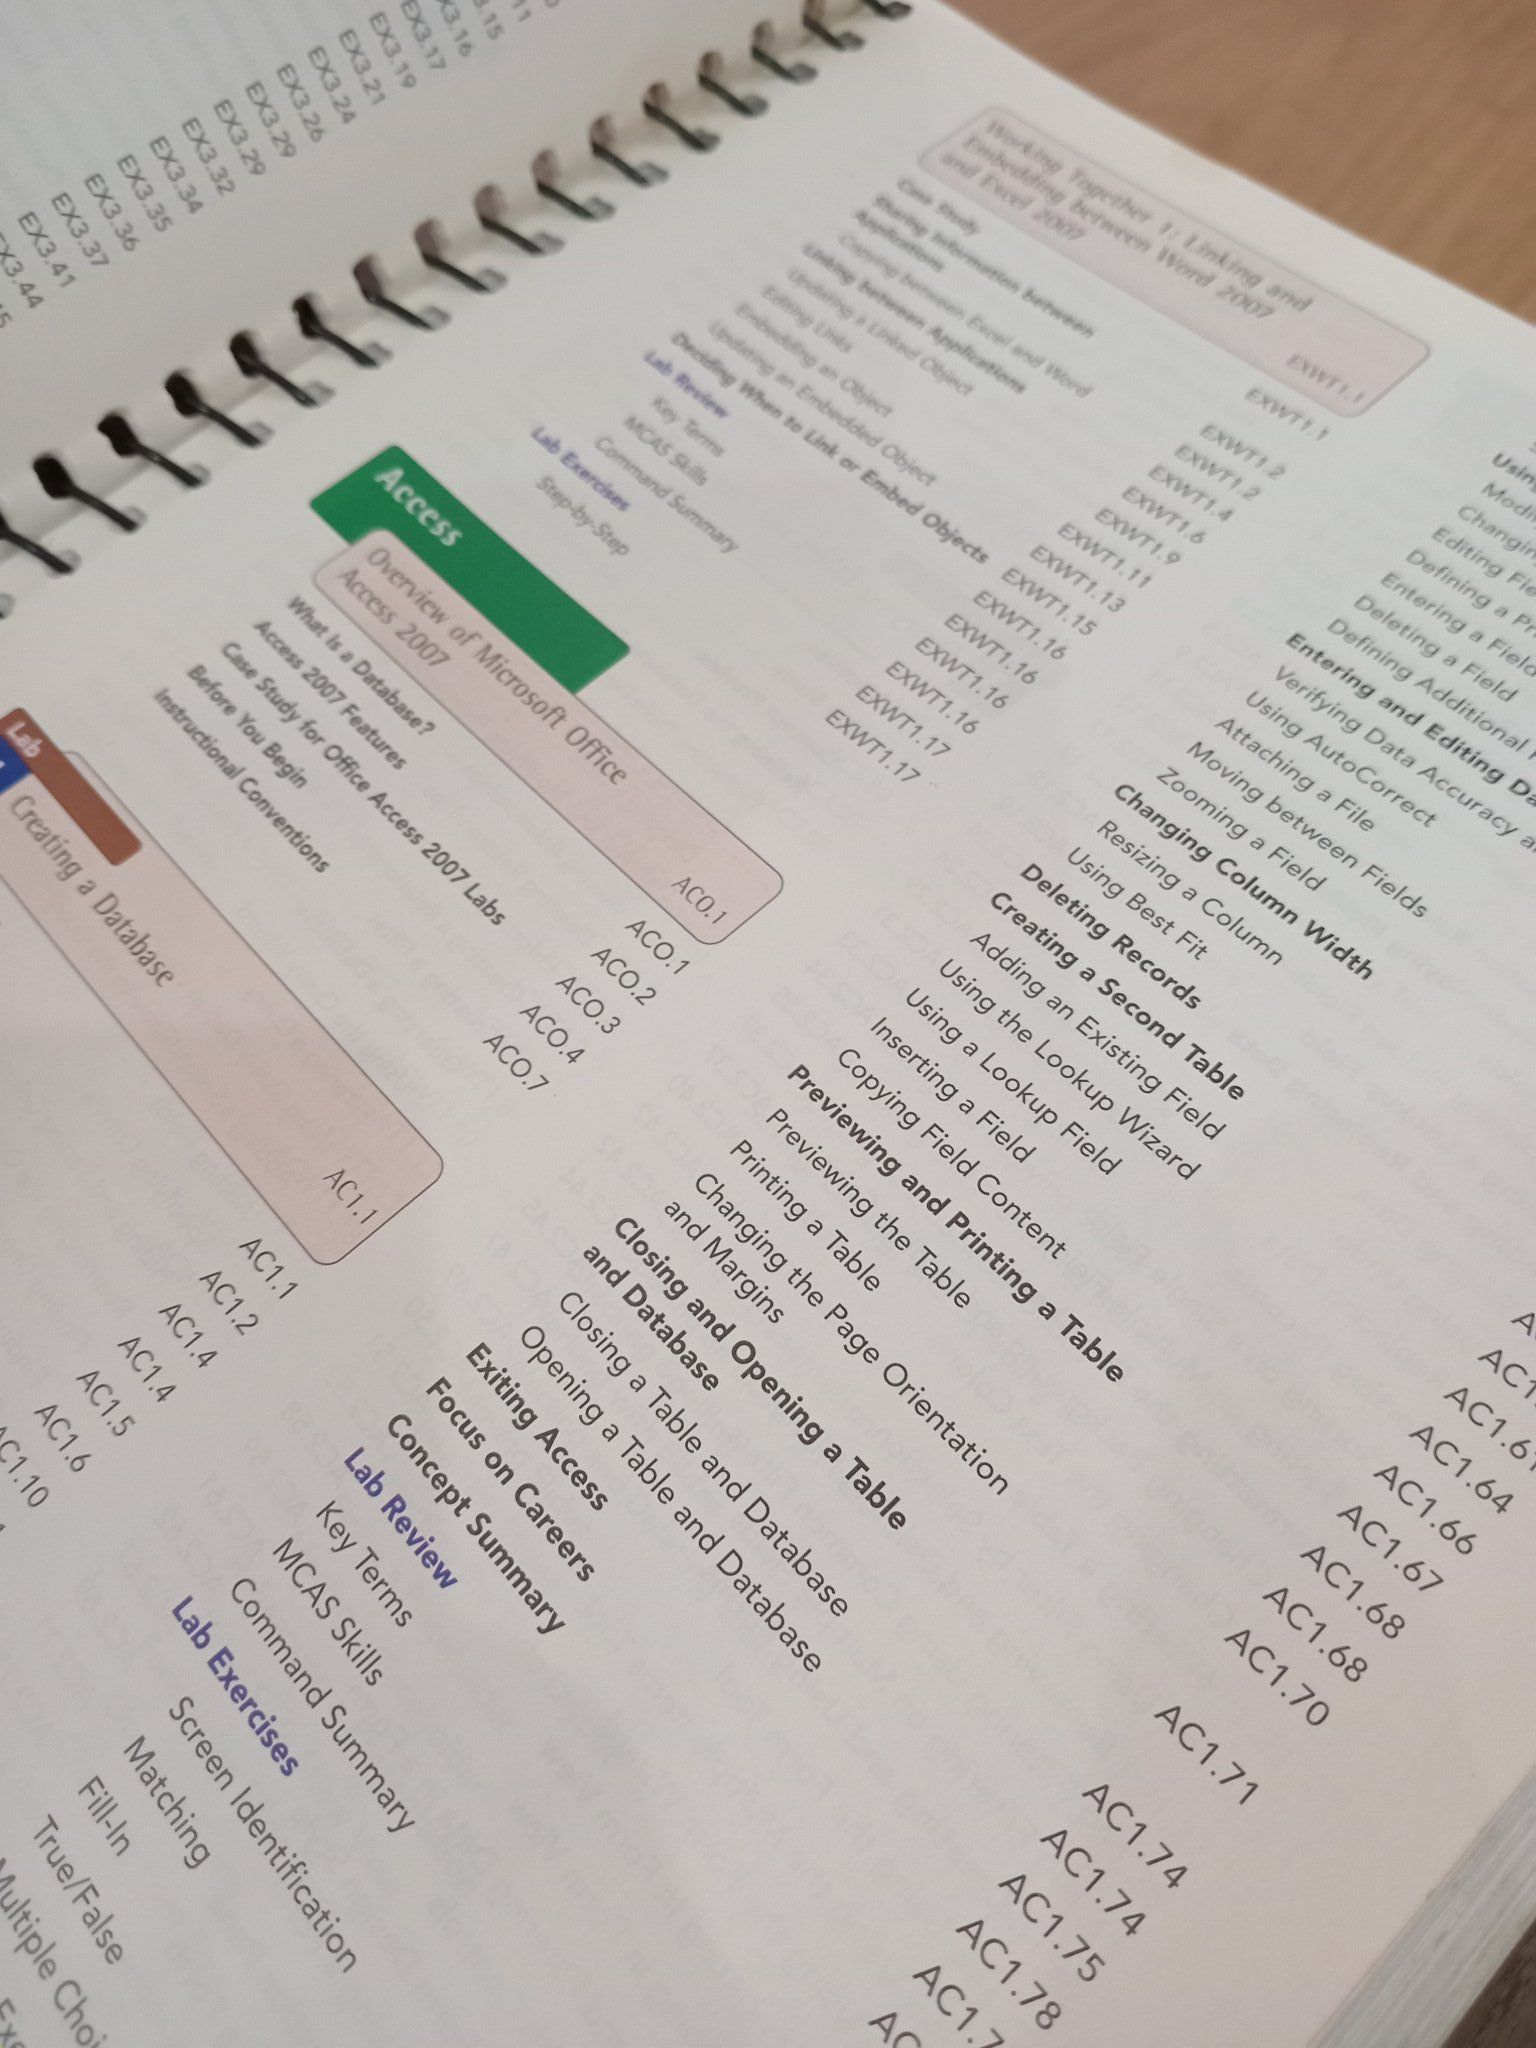 EX3.15
EX3.16
EX3.17
EX3.19
EX3.21
EX3.24
EX3.26
EX3.29
EX3.29
EX3.32
EX3.34
EX3.35
EX3.36
EX3.37
EX3.41
EX3.44
Working Together 1: Linking and
Embedding between Word 2007
and Excel 2007
EXWT1.1
Case Study
EXWT1.1
Sharing Information between
Applications
EXWT1.2
Copying between Excel and Word
EXWT1.2
Linking between Applications
EXWT1.4
Updating a Linked Object
EXWT1.6
Editing Links
EXWT1.9
Embedding an Object
EXWT1.11
Updating an Embedded Object
EXWT1.13
Deciding When to Link or Embed Objects
EXWT1.15
Lab Review
EXWT1.16
Key Terms
EXWT1.16
MCAS Skills
EXWT1.16
Command Summary
EXWT1.16
Lab Exercises
EXWT1.17
Step-by-Step
EXWT1.17
Access
Overview of Microsoft Office
Access 2007
ACO.1
What Is a Database?
ACO.1
Access 2007 Features
ACO.2
Case Study for Office Access 2007 Labs
ACO.3
Before You Begin
ACO.4
Instructional Conventions
ACO.7
Lab
Creating a Database
AC1.1
AC1.1
AC1.2
AC1.4
AC1.4
AC1.5
AC1.6
AC1.10
Editing
Defining a
Entering a Field
Deleting a Field
Defining Additional
Entering and Editing
Verifying Data Accuracy
Using AutoCorrect
Attaching a File
Moving between Fields
Zooming a Field
Changing Column Width
Resizing a Column
Using Best Fit
Deleting Records
Creating a Second Table
Adding an Existing Field
Using the Lookup Wizard
Using a Lookup Field
Inserting a Field
Copying Field Content
Previewing and Printing a Table
Previewing the Table
Printing a Table
Changing the Page Orientation
and Margins
Closing and Opening a Table
and Database
Closing a Table and Database
Opening a Table and Database
Exiting Access
Focus on Careers
Concept Summary
Lab Review
Key Terms
MCAS Skills
Command Summary
Lab Exercises
Screen Identification
Matching
Fill-In
True/False
Multiple
AC1.64
AC1.66
AC1.67
AC1.68
AC1.68
AC1.70
AC1.71
AC1.74
AC1.74
AC1.75
AC1.78